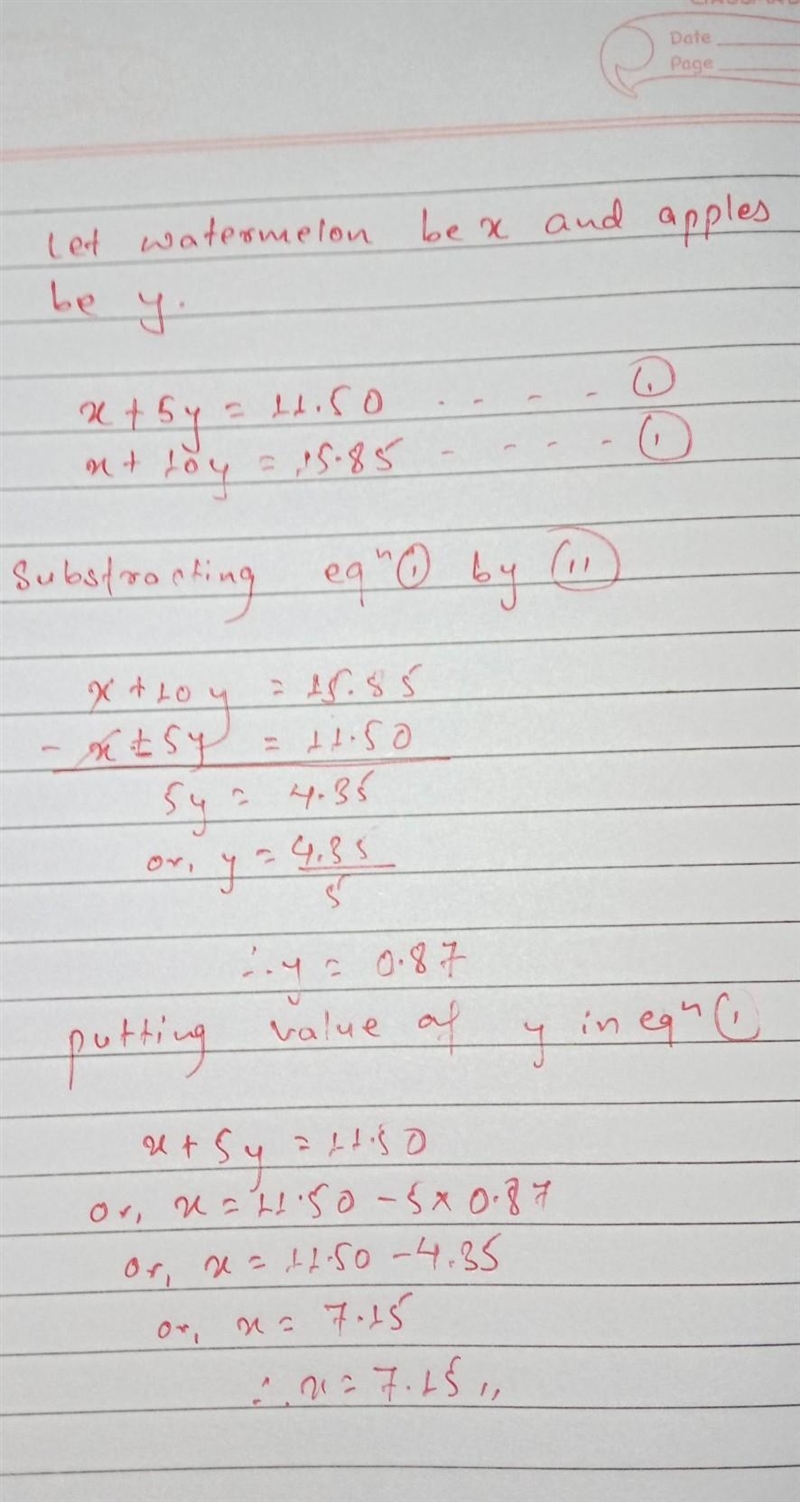 Date
Page
Let watermelon be x and apples
be y.
x + 5y = 11.50 - - - - (i)
x + 10y = 15.85 - - - - (i)
Substracting eqⁿ (i) by (ii)
x + 10y = 15.85
- x ± 5y = 11.50
5y = 4.35
or, y = 4.35/5
∴ y = 0.87
putting value of y in eqⁿ (i)
x + 5y = 11.50
or, x = 11.50 - 5 × 0.87
or, x = 11.50 - 4.35
or, x = 7.15
∴ x = 7.15 ,,